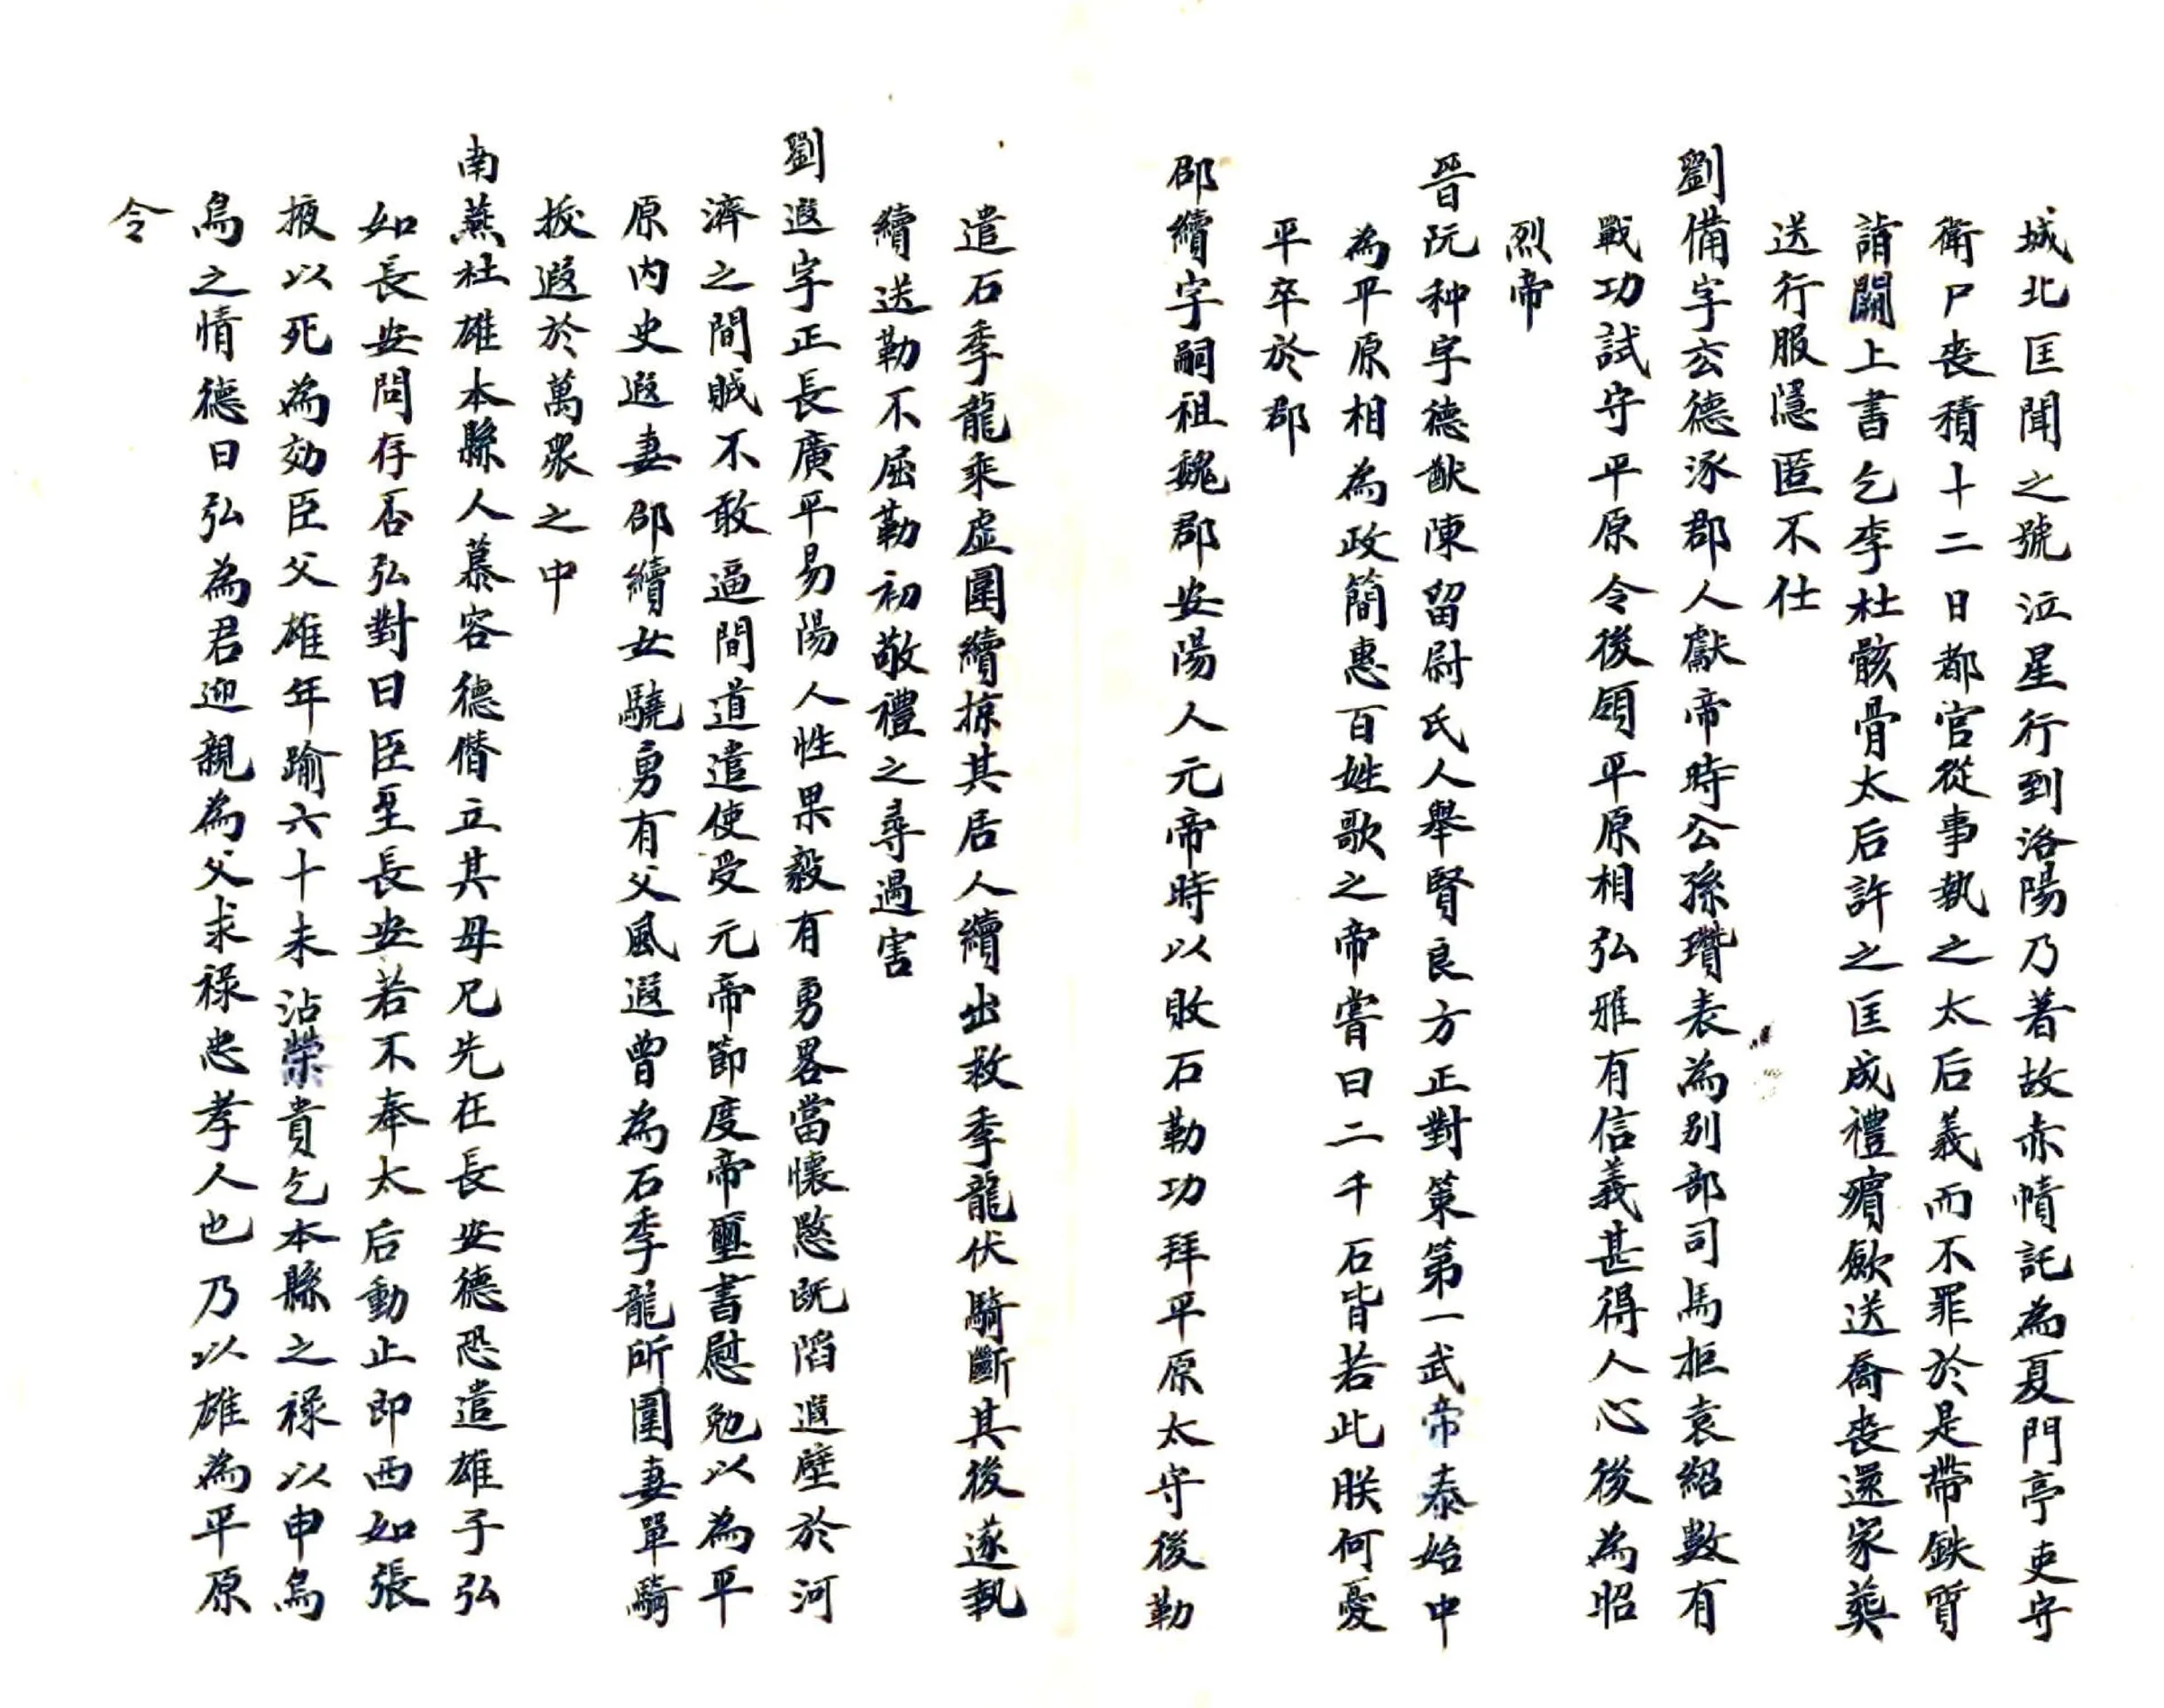 城北匡聞之號泣星行到洛陽乃著故赤幘託為夏門亭吏守
衛尸喪積十二日都官從事執之太后義而不罪於是帶鈇質
詣闕上書乞李杜骸骨太后許之匡成禮殯斂送喬喪還家葬
送行服隱匿不仕
劉備字玄德涿郡人獻帝時公孫瓚表為别部司馬拒袁紹數有
戰功試守平原令後領平原相弘雅有信義甚得人心後為昭
烈帝
晉阮种字德猷陳留尉氏人舉賢良方正對策第一武帝泰始中
為平原相為政簡惠百姓歌之帝嘗曰二千石皆若此朕何憂
平卒於郡
邵續字嗣祖魏郡安陽人元帝時以敗石勒功拜平原太守後勒
遣石季龍乘虛圍續掠其居人續出救季龍伏騎斷其後遂執
續送勒不屈勒初敬禮之尋遇害
劉遐字正長廣平易陽人性果毅有勇畧當懷愍既陷遐壁於河
濟之間賊不敢逼間道遣使受元帝節度帝璽書慰勉以為平
原内史遐妻邵續女驍勇有父風遐曾為石季龍所圍妻單騎
拔遐於萬衆之中
南燕杜雄本縣人慕容德僭立其母兄先在長安德恐遣雄子弘
如長安問存否弘對曰臣至長安若不奉太后動止即西如張
掖以死為効臣父雄年踰六十未沾榮貴乞本縣之祿以申烏
烏之情德曰弘為君迎親為父求祿忠孝人也乃以雄為平原
令